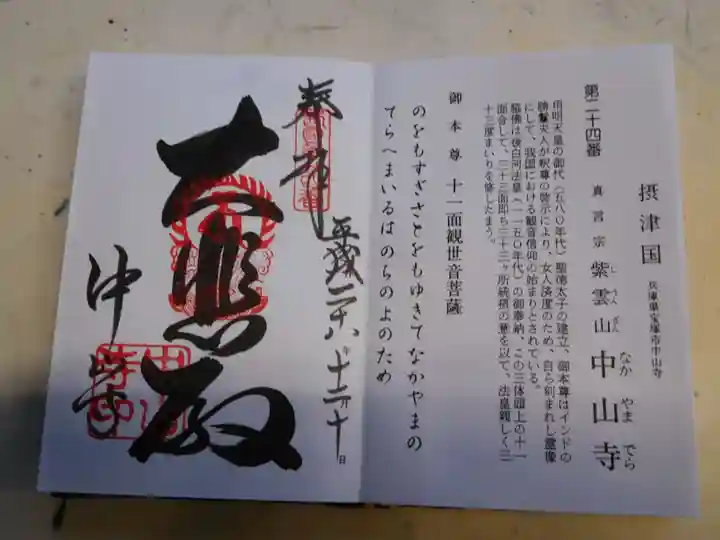 摂津国
兵庫県宝塚市中山寺
第二十四番
真言宗
紫雲山
し うん ざん
中山寺
なか やま でら
用明天皇の御代(五八〇年代)聖徳太子の建立、御本尊はインドの
勝鬘夫人が釈尊の啓示により、女人済度のため、自ら刻まれし霊像
にして、我国における観音信仰の始まりとされている。
脇佛は後白河法皇(一一五〇年代)の御奉納、この三体頭上の十一
面合して、三十三面即ち三十三ヶ所統摂の意を以て、法皇親しく三
十三度まいりを修したまう。
御本尊
十一面観世音菩薩
のをもすぎさとをもゆきてなかやまの
てらへまいるは のちのよのため
奉拝
平成二十八年十二月十日
大悲殿
中山寺